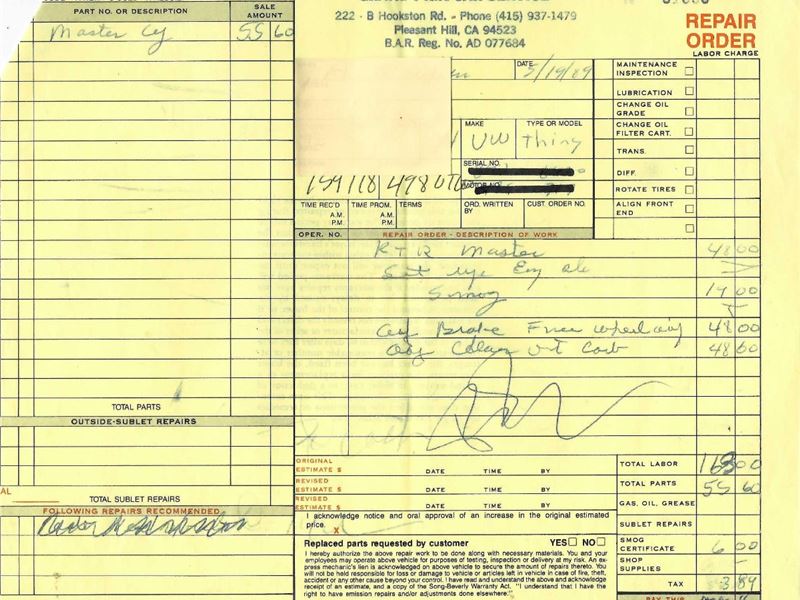 PART NO. OR DESCRIPTION
SALE
AMOUNT
Master Cy 55 60
222 - B Hookston Rd. - Phone (415) 937-1479
Pleasant Hill, CA 94523
B.A.R. Reg. No. AD 077684
REPAIR
ORDER
LABOR CHARGE
DATE 5/19/89
MAKE
VW
TYPE OR MODEL
Thing
SERIAL NO.
MOTOR NO.
159118 498
TIME REC'D
A.M.
P.M.
TIME PROM.
A.M.
P.M.
TERMS
ORD. WRITTEN
BY
CUST. ORDER NO.
MAINTENANCE
INSPECTION
LUBRICATION
CHANGE OIL
GRADE
CHANGE OIL
FILTER CART.
TRANS.
DIFF.
ROTATE TIRES
ALIGN FRONT
END
OPER. NO.
REPAIR ORDER - DESCRIPTION OF WORK
R + R Master 48 00
Set
Smog 19 00
Brake Free wheeling 48 00
48 00
TOTAL PARTS
OUTSIDE-SUBLET REPAIRS
AL
TOTAL SUBLET REPAIRS
FOLLOWING REPAIRS RECOMMENDED
ORIGINAL
ESTIMATE $ DATE TIME BY
REVISED
ESTIMATE $ DATE TIME BY
REVISED
ESTIMATE $ DATE TIME BY
I acknowledge notice and oral approval of an increase in the original estimated
price.
X
Replaced parts requested by customer YES NO
I hereby authorize the above repair work to be done along with necessary materials. You and your
employees may operate above vehicle for purposes of testing, inspection or delivery at my risk. An ex-
press mechanic's lien is acknowledged on above vehicle to secure the amount of repairs thereto. You
will not be held responsible for loss or damage to vehicle or articles left in vehicle in case of fire, theft,
accident or any other cause beyond your control. I have read and understand the above and acknowledge
receipt of an estimate, and a copy of the Song-Beverly Warranty Act. "I understand that I have the
right to have emission repairs and/or adjustments done elsewhere."
TOTAL LABOR 163 00
TOTAL PARTS 55 60
GAS, OIL, GREASE
SUBLET REPAIRS
SMOG
CERTIFICATE 6 00
SHOP
SUPPLIES
TAX 3 89
PAY THIS